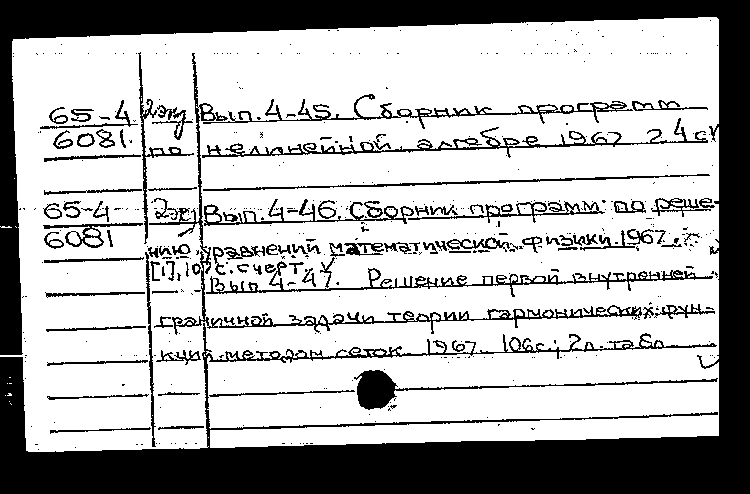 65-4 2 экз Вып. 4-45. Сборник программ
6081 по нелинейной алгебре 1967 24 с
65-4 2 экз Вып. 4-46. Сборник программ по реше-
6081 нию уравнений математической физики. 1967.
[1], 107 с. с черт.
Вып. 4-47. Решение первой внутренней
граничной задачи теории гармонических фун-
кций методом сеток 1967. 106 с.; 2 л. табл